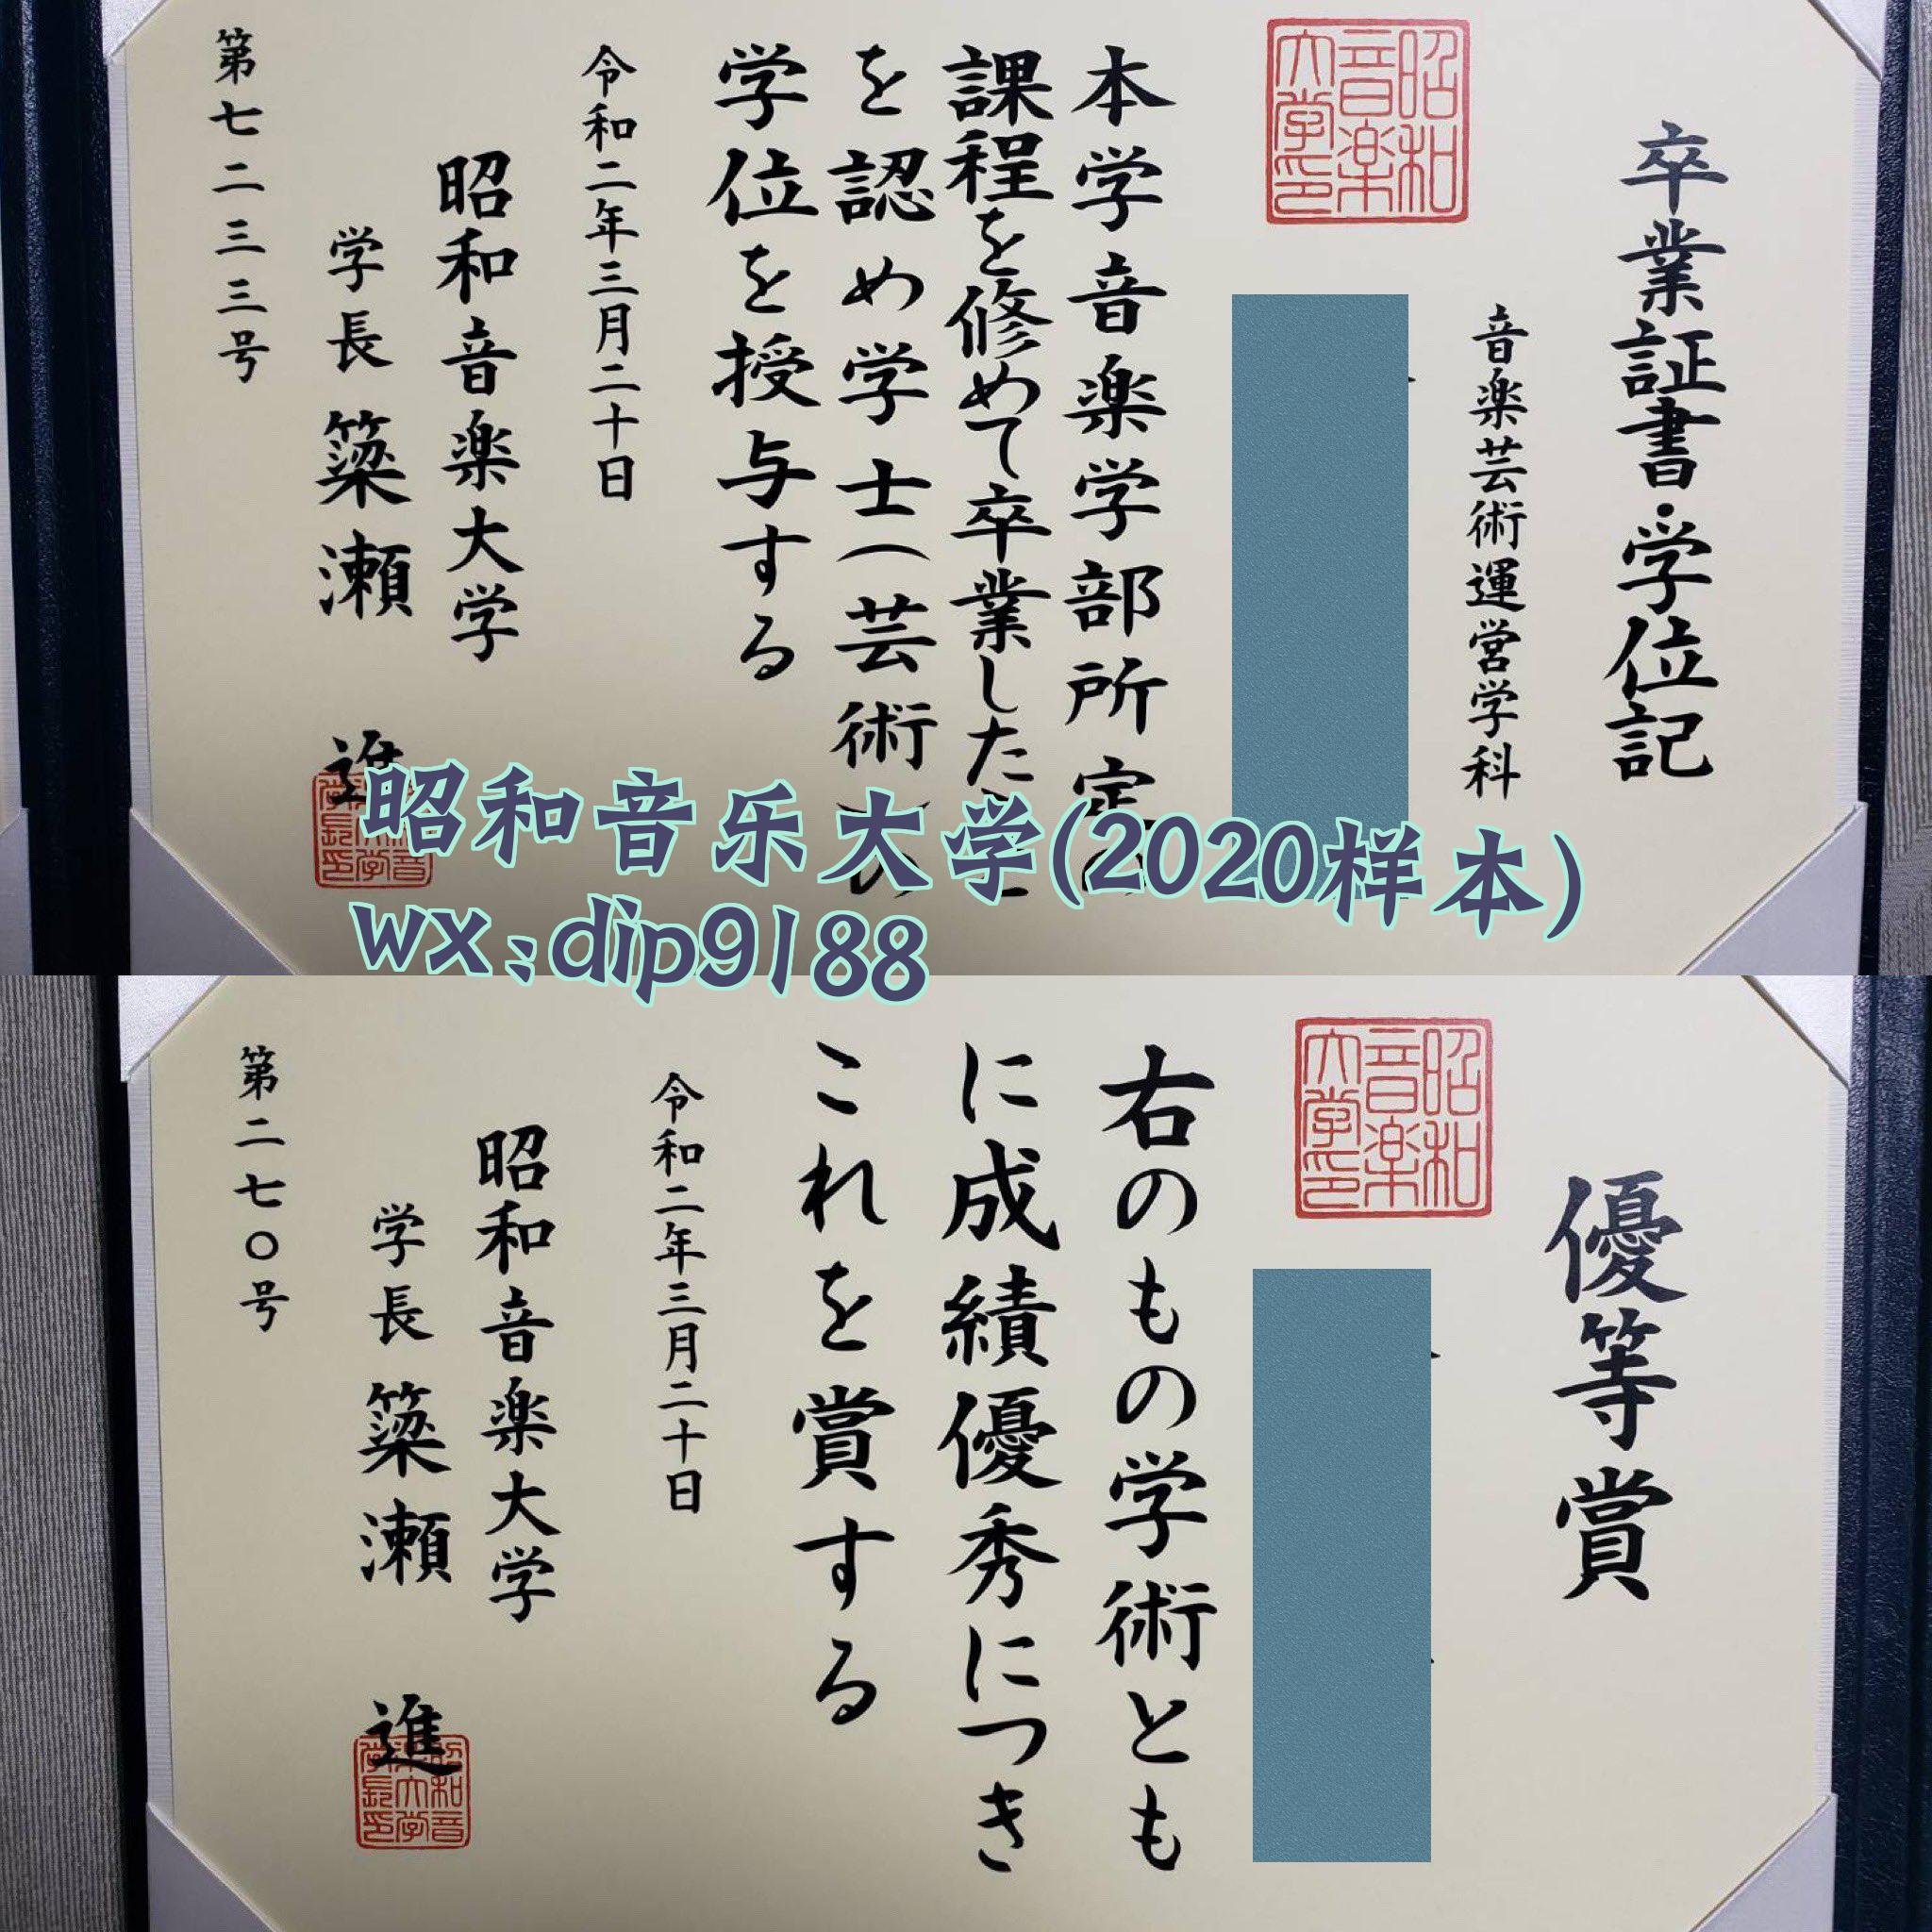 卒業証書・学位記
音楽芸術運営学科
昭和音楽大学印
本学音楽学部所定の
課程を修めて卒業したこと
を認め学士(芸術)の
学位を授与する
令和二年三月二十日
昭和音楽大学
学長 簗瀬 進
第七二三三号
昭和音乐大学(2020样本)
wx:dip9188
優等賞
昭和音楽大学印
右のもの学術とも
に成績優秀につき
これを賞する
令和二年三月二十日
昭和音楽大学
学長 簗瀬 進
第二七〇号